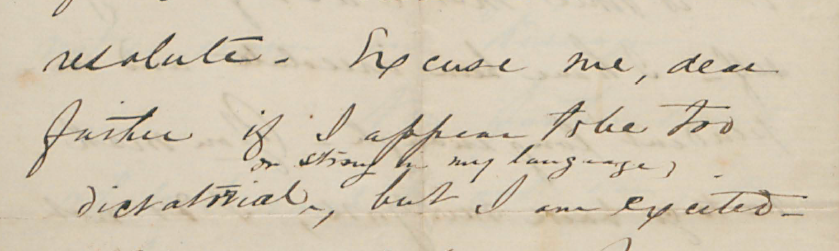 resolute - Excuse me, dear
father if I appear to be too
or strong in my language,
dictatorial, but I am excited -